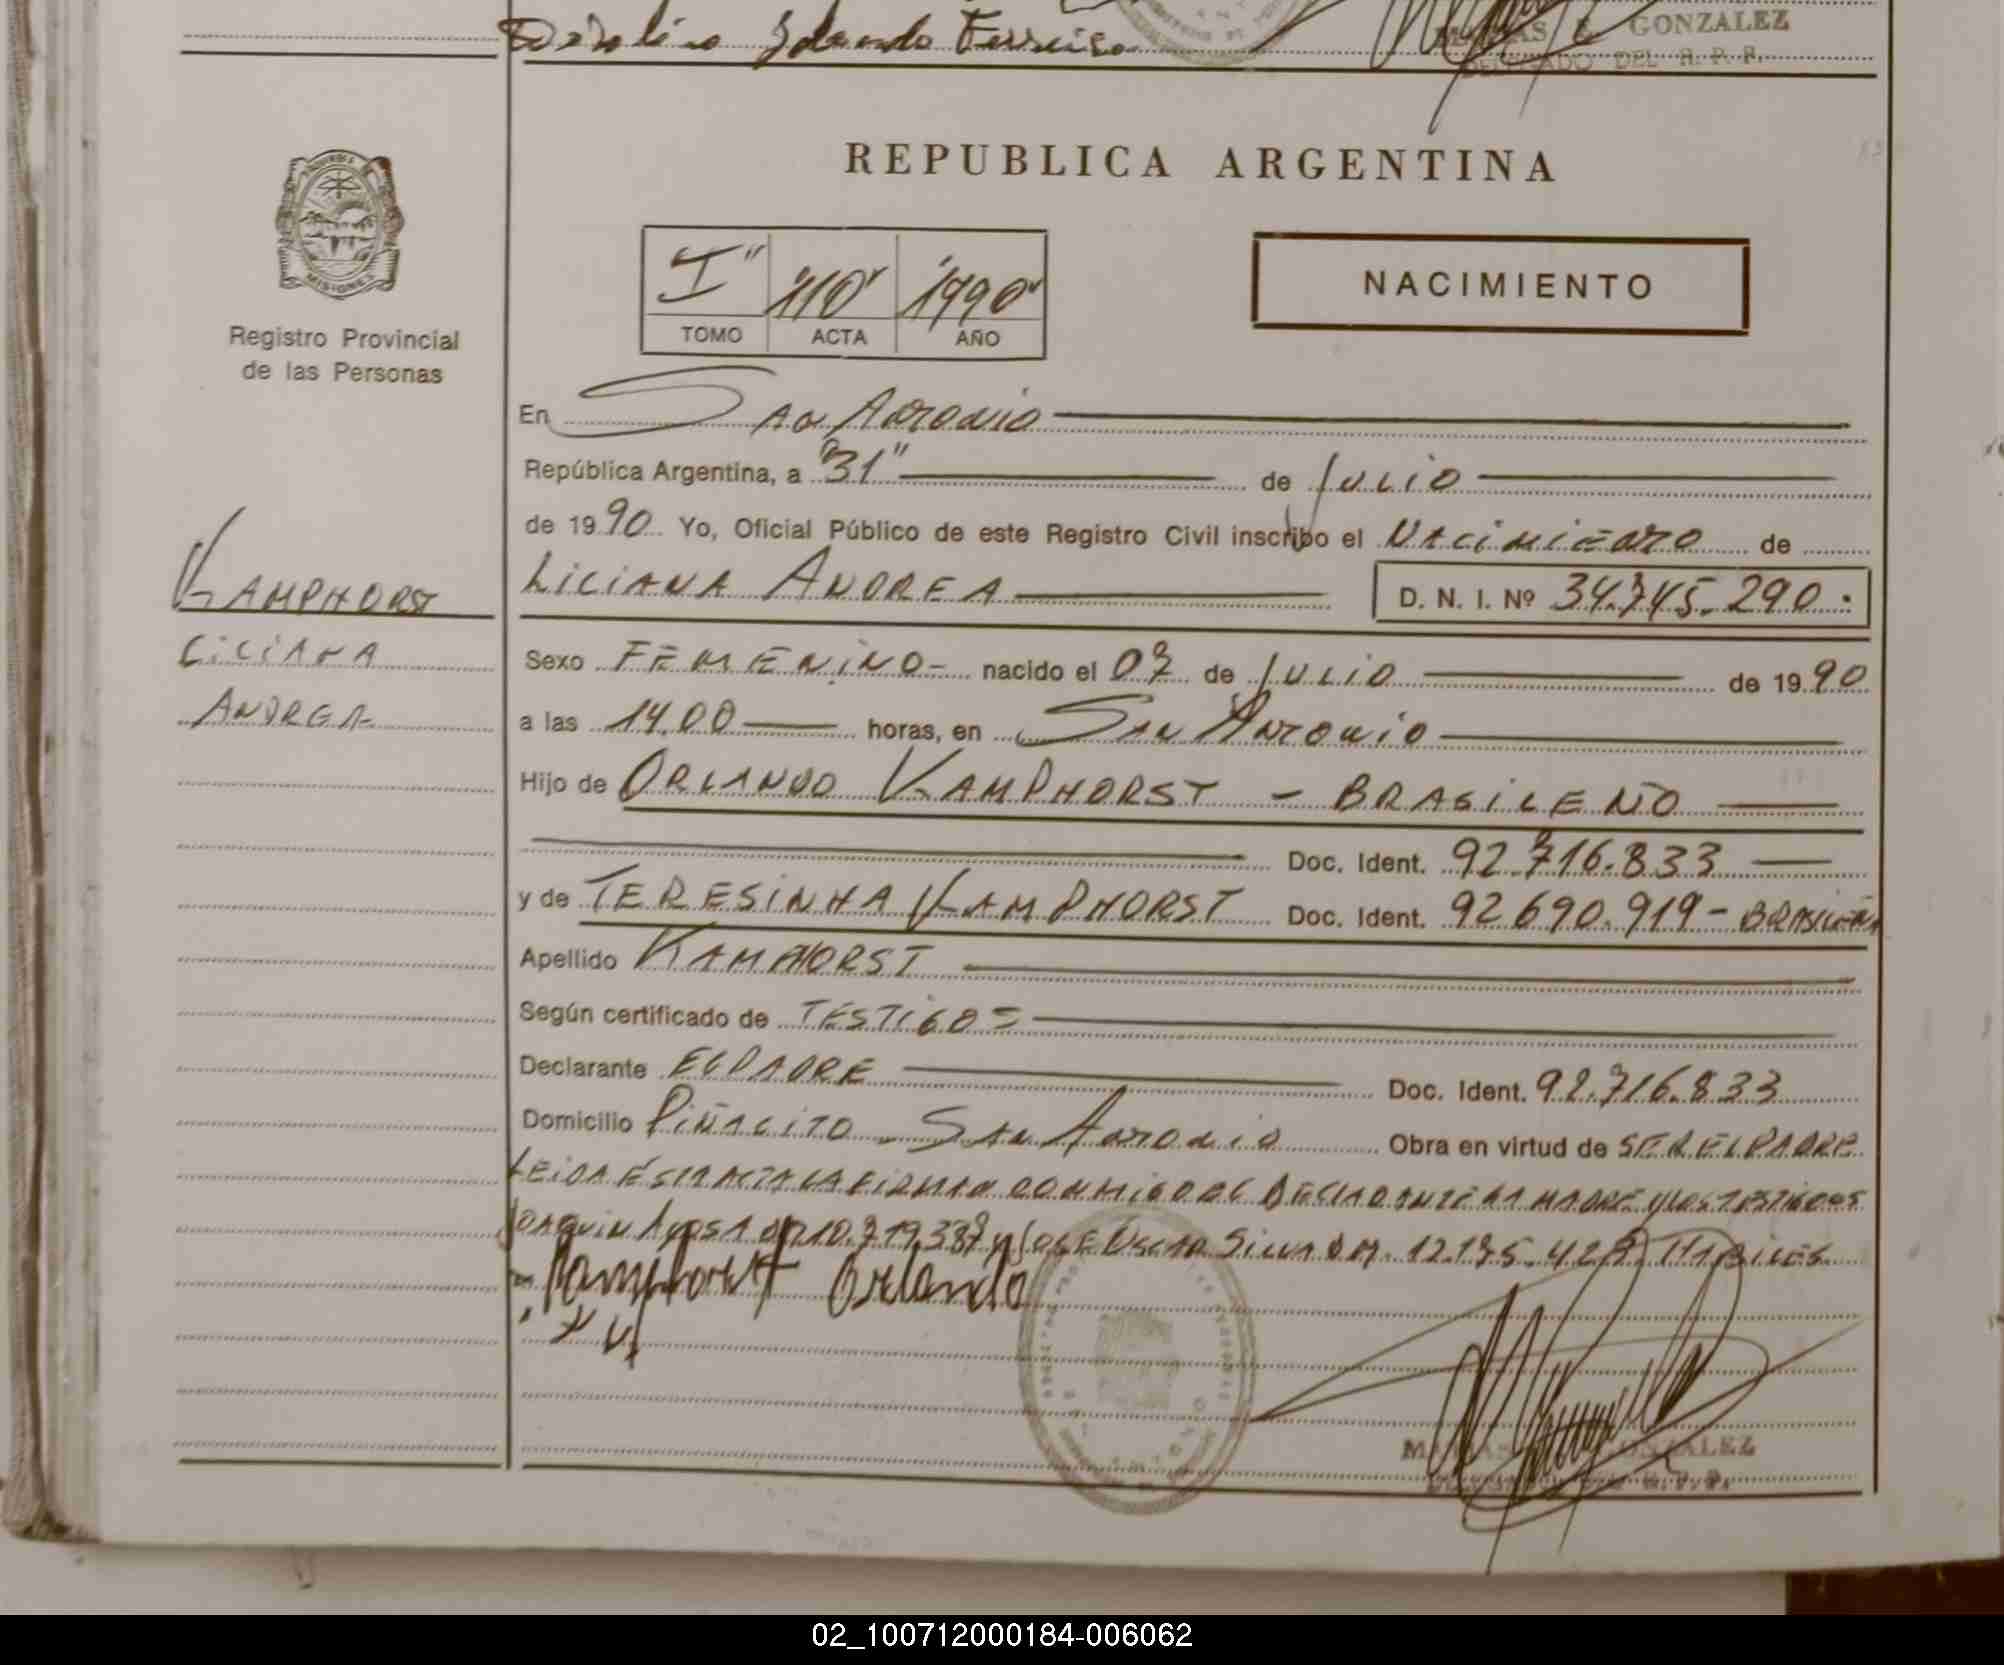 Idalino Ferreira
E. GONZALEZ
DELEGADO DEL R. P. P.
REPUBLICA ARGENTINA
MISIONES
Registro Provincial
de las Personas
I" "110" "1990"
TOMO ACTA AÑO
NACIMIENTO
En San Antonio
República Argentina, a "31" de Julio
de 1990 Yo, Oficial Público de este Registro Civil inscribo el Nacimiento de
KAMPHORST
LICIANA
ANDREA
LICIANA ANDREA D. N. I. Nº 34.745.290.
Sexo FEMENINO- nacido el 07 de Julio de 1990
a las 14.00 horas, en San Antonio
Hijo de ORLANDO KAMPHORST - BRASILEÑO
Doc. Ident. 92.716.833
y de TERESINHA KAMPHORST Doc. Ident. 92.690.919- BRASILEÑA
Apellido KAMPHORST
Según certificado de TESTIGOS
Declarante EL PADRE Doc. Ident. 92.716.833
Domicilio PIÑALITO San Antonio Obra en virtud de SER EL PADRE
LEIDA ESTA ACTA LA FIRMAN CONMIGO EL DECLARANTE LA MADRE Y LOS TESTIGOS
JOAQUIN 10.719.387 y JOSE OSCAR SILVA D.M. 12.195.427 HABILES
Kamphorst Orlando
GONZALEZ
R. P. P.
02_100712000184-006062